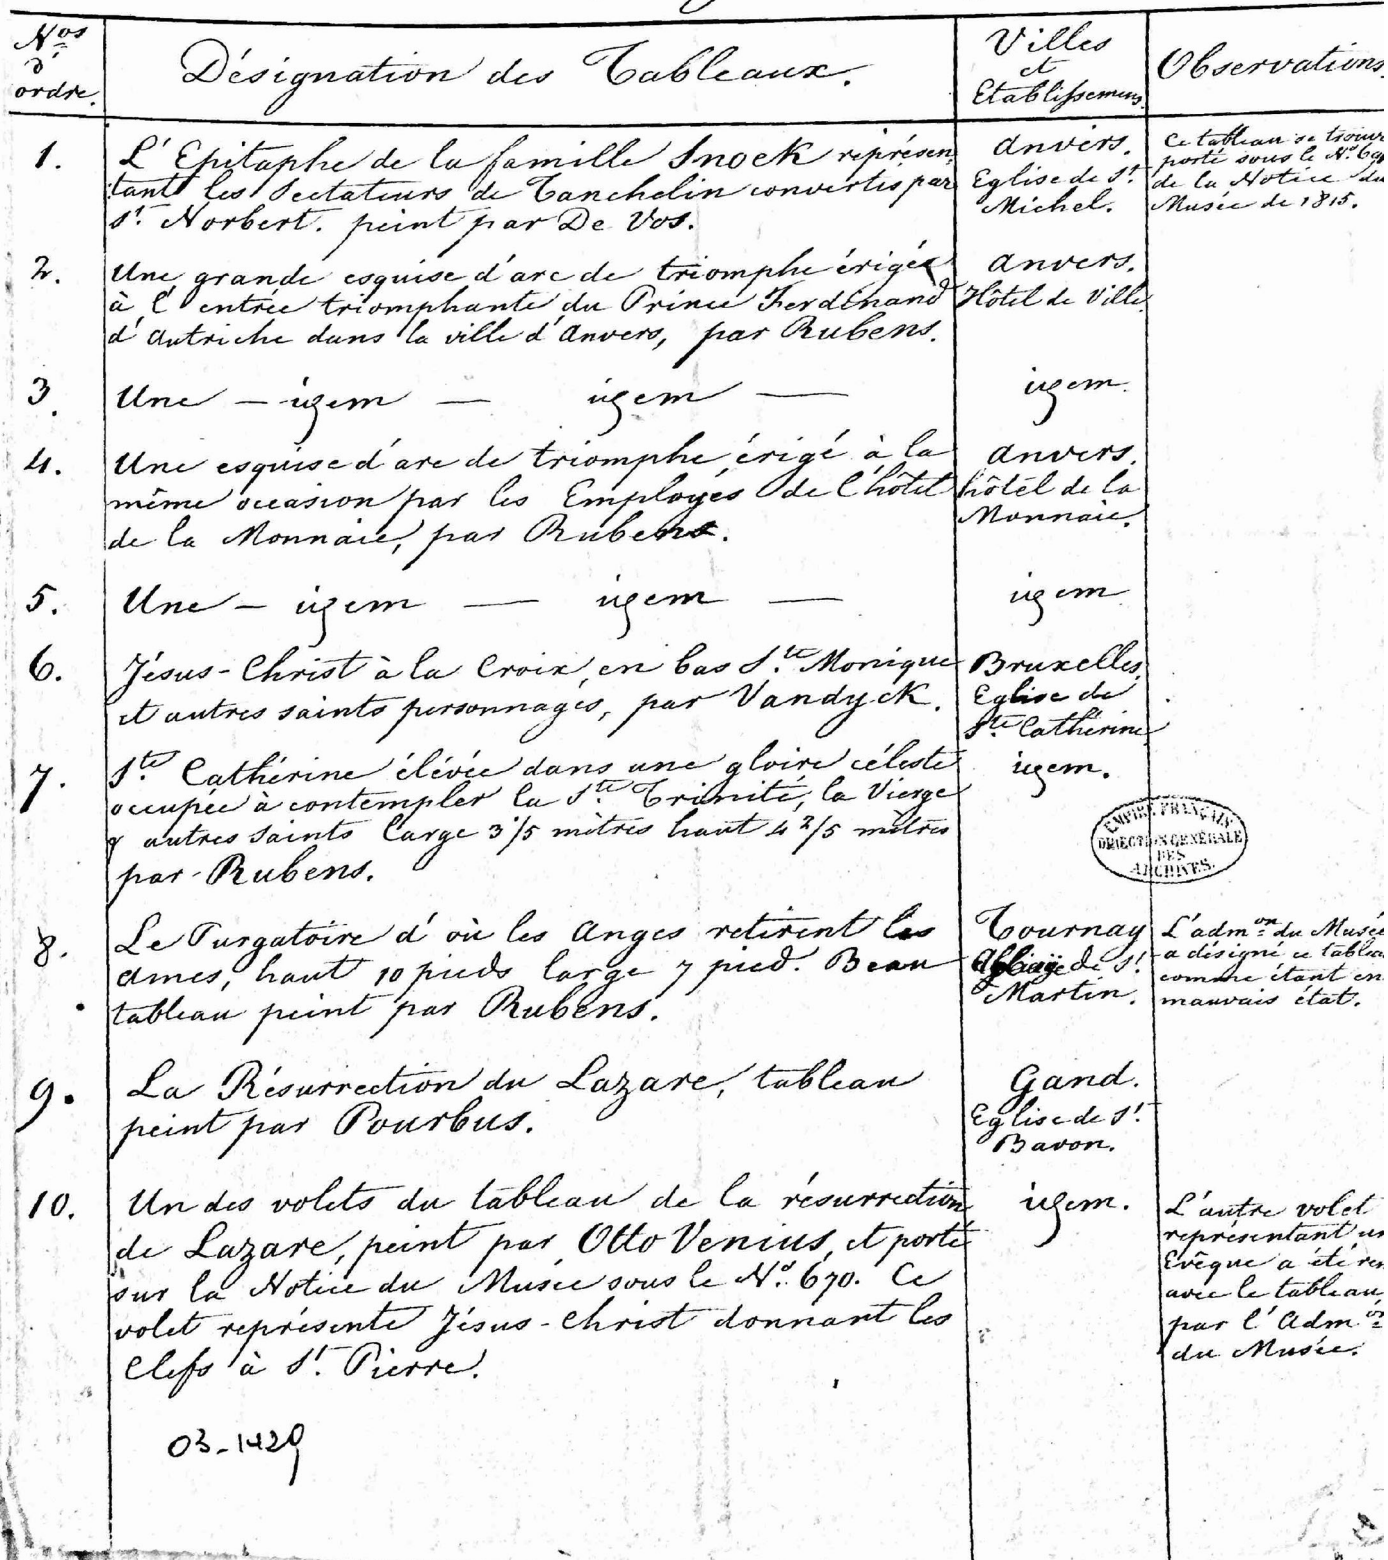 Nos
d'
ordre.
Désignation des Tableaux.
Villes
et
Etablissemens
Observations
1.
L'Epitaphe de la famille Snoek représen
tant les Sectateurs de Tanchelin convertis par
St. Norbert. peint par De Vos.
anvers.
Eglise de St.
Michel.
Ce tableau se trouve
porté sous le No.
de la Notice du
Musée de 1815.
2.
Une grande esquise d'arc de triomphe érigée
à l'entrée triomphante du Prince Ferdinand
d'autriche dans la ville d'anvers, par Rubens.
anvers.
Hôtel de Ville.
3.
Une — igem — igem —
igem.
4.
Une esquise d'arc de triomphe érigé à la
même occasion par les Employés de l'hôtel
de la Monnaie, par Rubens.
anvers.
hôtel de la
Monnaie.
5.
Une — igem — igem —
igem
6.
Jésus-Christ à la Croix, en bas Ste. Monique
et autres saints personnages, par Vandyck.
Bruxelles.
Eglise de
Ste. Cathérine
7.
Ste. Cathérine élévée dans une gloire céleste
occupée à contempler la Ste. Trinité, la Vierge
& autres Saints large 3 1/5 mètres haut 4 2/5 mètres
par Rubens.
igem.
EMPIRE FRANÇAIS
DIRECTION GENERALE
DES
ARCHIVES.
8.
Le Purgatoire d'où les anges retirent les
ames, haut 10 pieds large 7 pied. Beau
tableau peint par Rubens.
Tournay
abbaije de St.
Martin.
L'admon. du Musée
a désigné ce tableau
comme étant en
mauvais état.
9.
La Résurrection du Lazare, tableau
peint par Pourbus.
Gand.
Eglise de St.
Bavon.
10.
Un des volets du tableau de la résurrection
de Lazare, peint par Otto Venius, et porté
sur la Notice du Musée sous le No. 670. Ce
volet représente Jésus-Christ donnant les
Clefs à St. Pierre.
igem.
L'autre volet
représentant un
Evêque a été
avec le tableau
par l'Admon.
du Musée.
03-1429